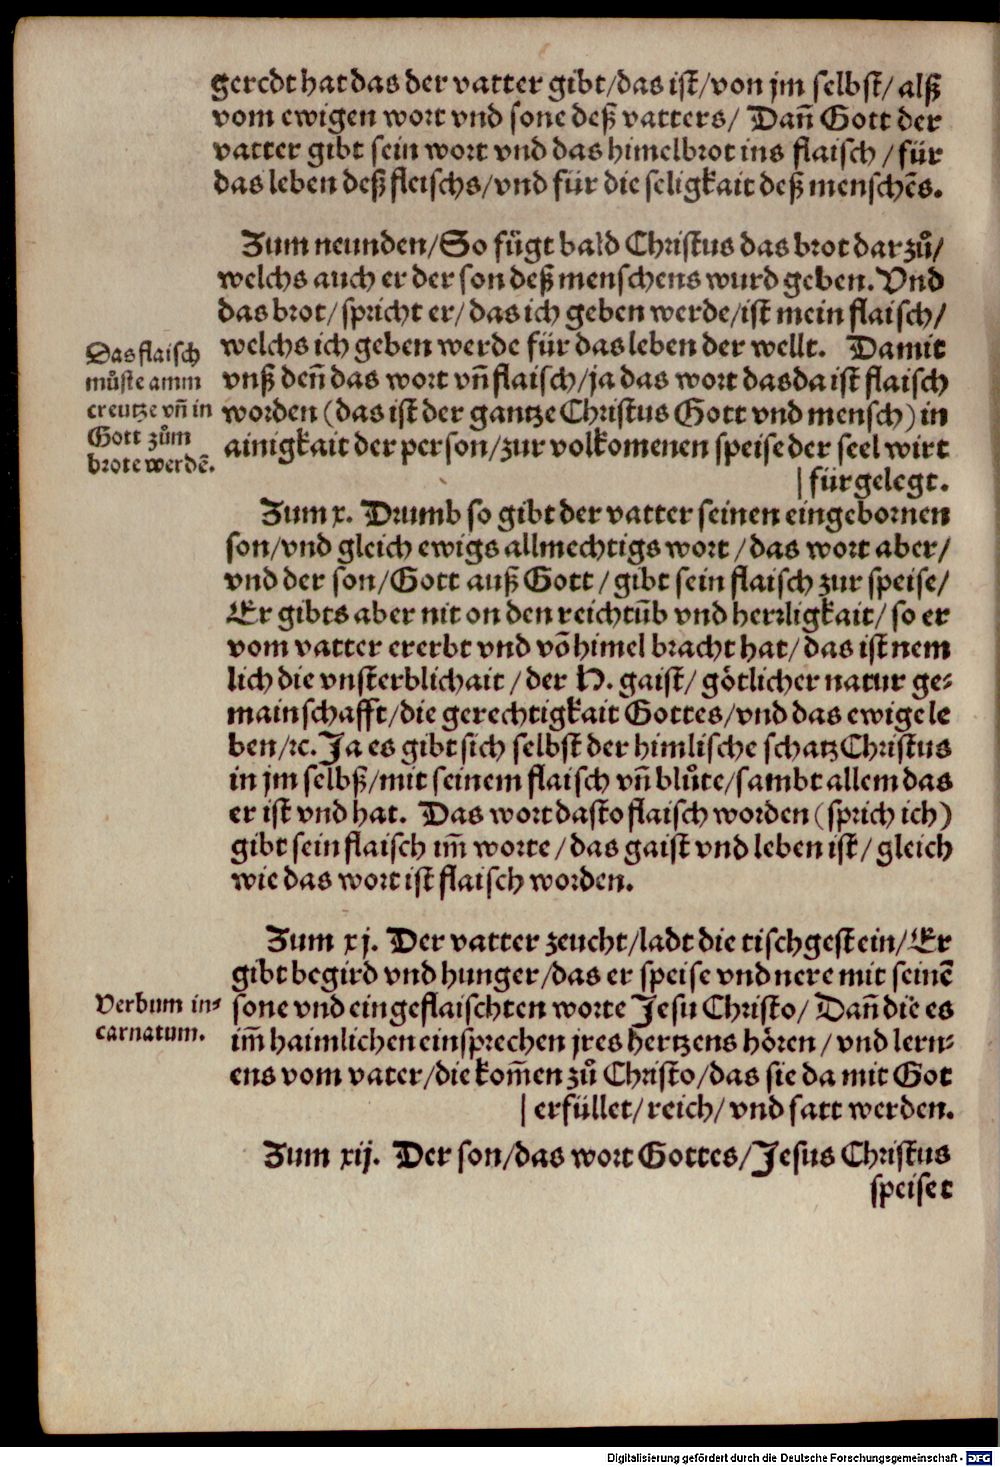 geredt hat das der vatter gibt/das ist/von jm selbst/ alß
vom ewigen wort vnd sone deß vatters/ Dañ Gott der
vatter gibt sein wort vnd das himelbrot ins flaisch /für
das leben deß fleischs/vnd für die seligkait deß menschēs.
Zum neunden/So fügt bald Christus das brot dar zů/
welchs auch er der son deß menschens wurd geben. Vnd
das brot/ spricht er/ das ich geben werde/ist mein flaisch/
welchs ich geben werde für das leben der wellt. Damit
vnß deñ das wort vñ flaisch/ja das wort das da ist flaisch
worden (das ist der gantze Christus Gott vnd mensch) in
ainigkait der person/zur volkomenen speise der seel wirt
| fürgelegt.
Das flaisch
můste amm
creutze vñ in
Gott zům
brote werdē.
Zum x. Drumb so gibt der vatter seinen eingebornen
son/vnd gleich ewigs allmechtigs wort /das wort aber/
vnd der son/Gott auß Gott /gibt sein flaisch zur speise/
Er gibts aber nit on den reichtūb vnd herrligkait/ so er
vom vatter ererbt vnd vō himel bracht hat/das ist nem
lich die vnsterblichait /der H. gaist/ götlicher natur ge-
mainschafft/die gerechtigkait Gottes/vnd das ewige le
ben/ꝛc. Ja es gibt sich selbst der himlische schatz Christus
in jm selbß/mit seinem flaisch vñ blůte/sambt allem das
er ist vnd hat. Das wort dasto flaisch worden (sprich ich)
gibt sein flaisch im̃ worte /das gaist vnd leben ist/ gleich
wie das wort ist flaisch worden.
Zum xj. Der vatter zeucht/ladt die tischgest ein/Er
gibt begird vnd hunger/das er speise vnd nere mit seinē
sone vnd eingeflaischten worte Jesu Christo/ Dañ die es
im̃ haimlichen einsprechen jres hertzens hören /vnd lern-
ens vom vater/die kom̃en zů Christo/das sie da mit Got
| erfüllet/reich/ vnd satt werden.
Verbum in-
carnatum.
Zum xij. Der son/das wort Gottes/Jesus Christus
speiset
Digitalisierung gefördert durch die Deutsche Forschungsgemeinschaft - DFG